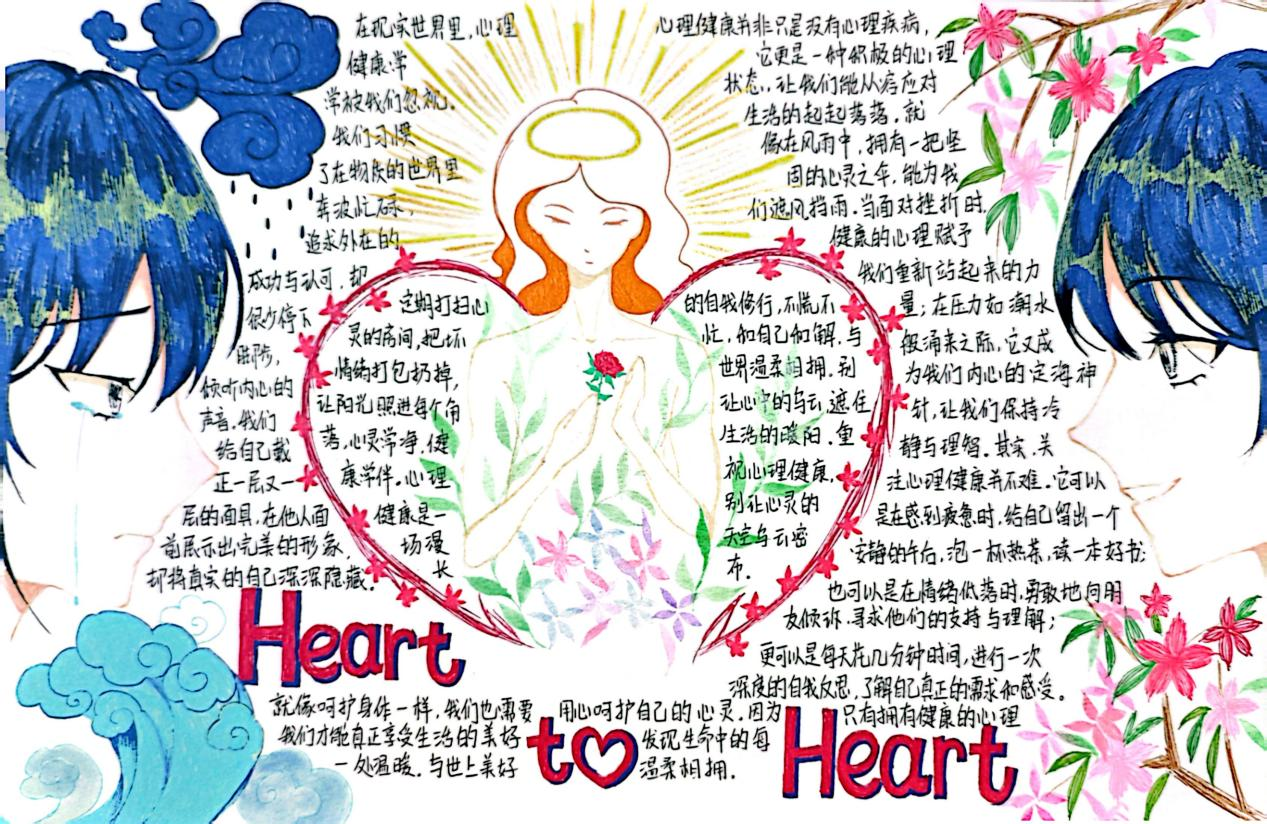 在现实世界里，心理
健康学
学被我们忽视。
我们习惯
了在物质的世界里
奔波忙碌，
追求外在的
成功与认可，却
很少停下
脚步，
倾听内心的
声音。我们
给自己戴
正一层又一
层的面具，在他人面
前展示出完美的形象，
却将真实的自己深深隐藏。
定期打扫心
灵的房间，把坏
情绪打包扔掉，
让阳光照进每个角
落，心灵常净，健
康常伴。心理
健康是一
场漫
长
的自我修行，不慌不
忙，和自己和解，与
世界温柔相拥。别
让心中的乌云，遮住
生活的暖阳。重
视心理健康，
别让心灵的
天空乌云密
布。
心理健康并非只是没有心理疾病，
它更是一种积极的心理
状态，让我们能从容应对
生活的起起落落。就
像在风雨中，拥有一把坚
固的心灵之伞，能为我
们遮风挡雨。当面对挫折时，
健康的心理赋予
我们重新站起来的力
量；在压力如潮水
般涌来之际，它又成
为我们内心的定海神
针，让我们保持冷
静与理智。其实，关
注心理健康并不难。它可以
是在感到疲惫时，给自己留出一个
安静的午后，泡一杯热茶，读一本好书；
也可以是在情绪低落时，勇敢地向朋
友倾诉，寻求他们的支持与理解；
更可以是每天花几分钟时间，进行一次
深度的自我反思，了解自己真正的需求和感受。
Heart
to
Heart
就像呵护身体一样，我们也需要 用心呵护自己的心灵。因为 只有拥有健康的心理
我们才能真正享受生活的美好 发现生命中的每
一处温暖。与世上美好 温柔相拥。